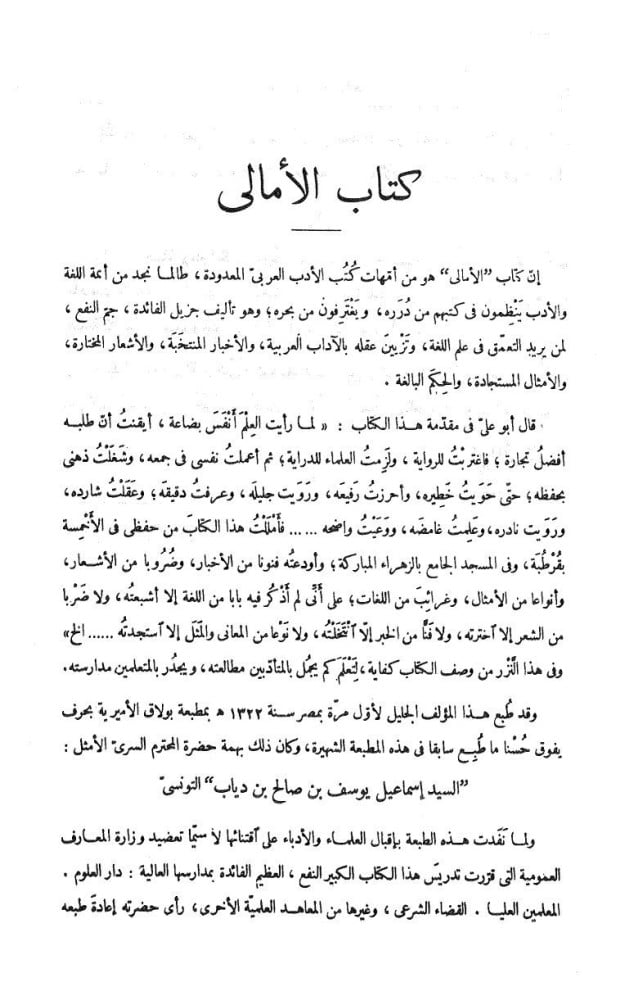 كتاب الأمالى
إنّ كتاب "الأمالى" هو من أمّهات كُتُب الأدب العربىّ المعدودة ، طالما نجد من أئمة اللغة
والأدب يَنْظِمون فى كتبهم من دُرَره، ويَغْتَرِفون من بحره؛ وهو تأليف جزيل الفائدة ، جمّ النفع ،
لمن يريد التعمّق فى علم اللغة، وتَزْيينَ عقله بالآداب العربية، والأخبار المنتخَبَة، والأشعار المختارة،
والأمثال المستجادة، والحِكَم البالغة .
قال أبو علىّ فى مقدّمة هذا الكتاب : « لما رأيت العِلْمَ أَنْفَسَ بضاعة ، أيقنتُ أنّ طلبه
أفضلُ تجارة ؛ فاغتربْتُ للرواية ، ولَزِمتُ العلماء للدراية؛ ثم أعملت نفسى فى جمعه، وشَغَلْتُ ذهنى
بحفظه؛ حتّى حَوَيتُ خَطِيره، وأحرزتُ رفيعَه، ورَوَيت جليلَه، وعرفتُ دقيقَه؛ وعَقَلْتُ شارده،
ورَوَيت نادره، وعَلِمتُ غامضَه، ووَعَيْتُ واضحه ...... فأَمْلَلْتُ هذا الكتابَ من حفظى فى الأَخْمِسة
بقُرْطُبَة، وفى المسجد الجامع بالزهراء المباركة؛ وأودعتُه فنونا من الأخبار، وضُرُوبا من الأشعار،
وأنواعا من الأمثال، وغرائبَ من اللغات؛ على أنّى لم أَذْكُر فيه بابا من اللغة إلا أشبعتُه، ولا ضَرْبا
من الشعر إلا اخترته، ولا فَنًّا من الخبر إلّا ٱنْتَخَلْتُه، ولا نَوْعا من المعانى والمَثَل إلا ٱستجدتُه ...... الخ»
وفى هذا النَّزْر من وصف الكتاب كفاية، لِتَعْلَم كم يجمُل بالمتأدّبين مطالعته، ويجدُر بالمتعلمين مدارسته.
وقد طُبع هذا المؤلف الجليل لأوّل مرّة بمصر سنة ١٣٢٢ ﻫ بمطبعة بولاق الأميرية بحرف
يفوق حُسْنا ما طُبِع سابقا فى هذه المطبعة الشهيرة، وكان ذلك بهمة حضرة المحترم السرىّ الأمثل :
"السيد إسماعيل يوسف بن صالح بن دياب" التونسىّ
ولما نَفَدت هذه الطبعة بإقبال العلماء والأدباء على ٱقتنائها لا سيّما تعضيد وزارة المعارف
العمومية التى قررت تدريسَ هذا الكتاب الكبير النفع ، العظيم الفائدة بمدارسها العالية : دار العلوم .
المعلمين العليا . القضاء الشرعى ، وغيرها من المعاهد العلميّة الأخرى، رأى حضرته إعادةَ طبعه